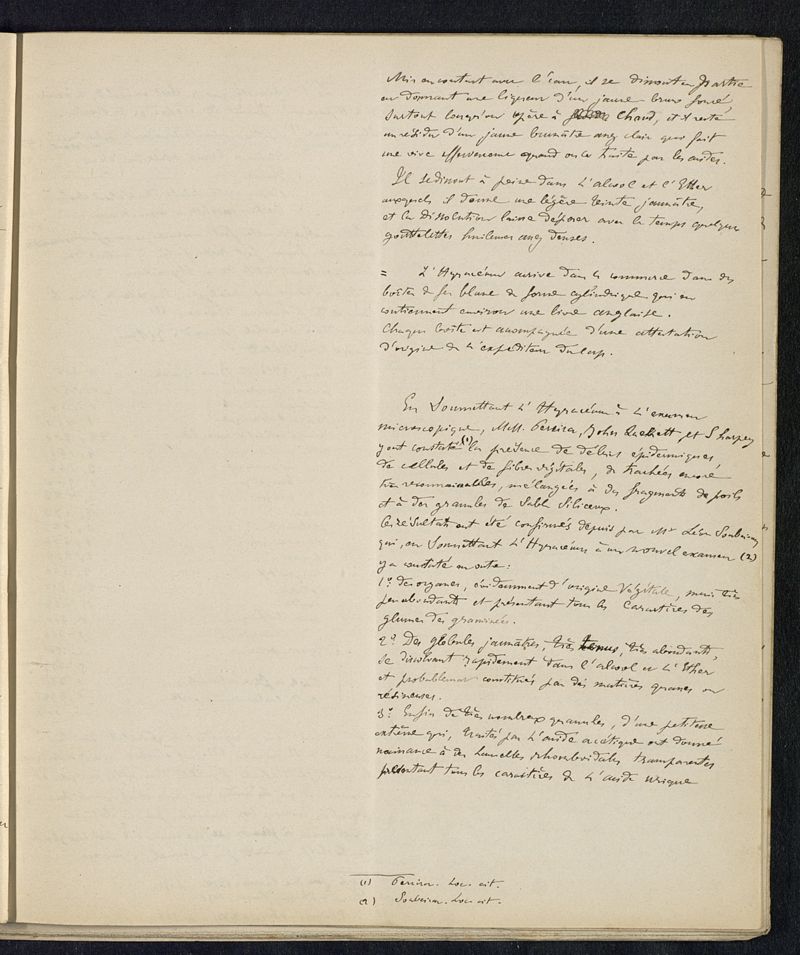 Mis en contact avec l'eau, il se dissout en partie
en donnant une liqueur d'un jaune brun foncé,
surtout lorsqu'on opère à chaud, et il reste
un résidu d'un jaune brunâtre assez clair qui fait
une vive effervescence quand on le traite par les acides.
Il se dissout à peine dans l'alcool et l'Ether
auxquels il donne une légère teinte jaunâtre,
et la dissolution laisse déposer avec le temps quelques
gouttelettes huileuses assez denses.
= L'Hyracéum arrive dans le commerce dans des
boîtes de fer blanc de forme cylindrique qui en
contiennent environ une livre anglaise.
Chaque boîte est accompagnée d'une attestation
d'origine de l'expéditeur du Cap.
En soumettant l'Hyracéum à l'examen
microscopique, MM. Pereira, John Quekett et Sharpey
y ont constaté (1) la présence de débris épidermiques
de cellules et de fibres végétales, de trachées encore
très reconnaissables, mélangées à des fragments de poils
et à des granules de sable siliceux.
Ces résultats ont été confirmés depuis par Mr Léon Soubeiran
qui, en soumettant l'Hyracéum à un nouvel examen (2)
y a constaté en outre :
1º. des organes, évidemment d'origine végétale, mais très
peu abondants et présentant tous les caractères des
glumes des graminées.
2º. Des globules jaunâtres, très tenus, très abondants,
se dissolvant rapidement dans l'alcool et l'Ether
et probablement constitués par des matières grasses ou
résineuses.
3º. Enfin de très nombreux granules, d'une petitesse
extrême qui, traités par l'acide acétique ont donné
naissance à des lamelles rhomboïdales transparentes
présentant tous les caractères de l'acide urique
(1) Pereira. Loc. cit.
(2) Soubeiran. Loc. cit.